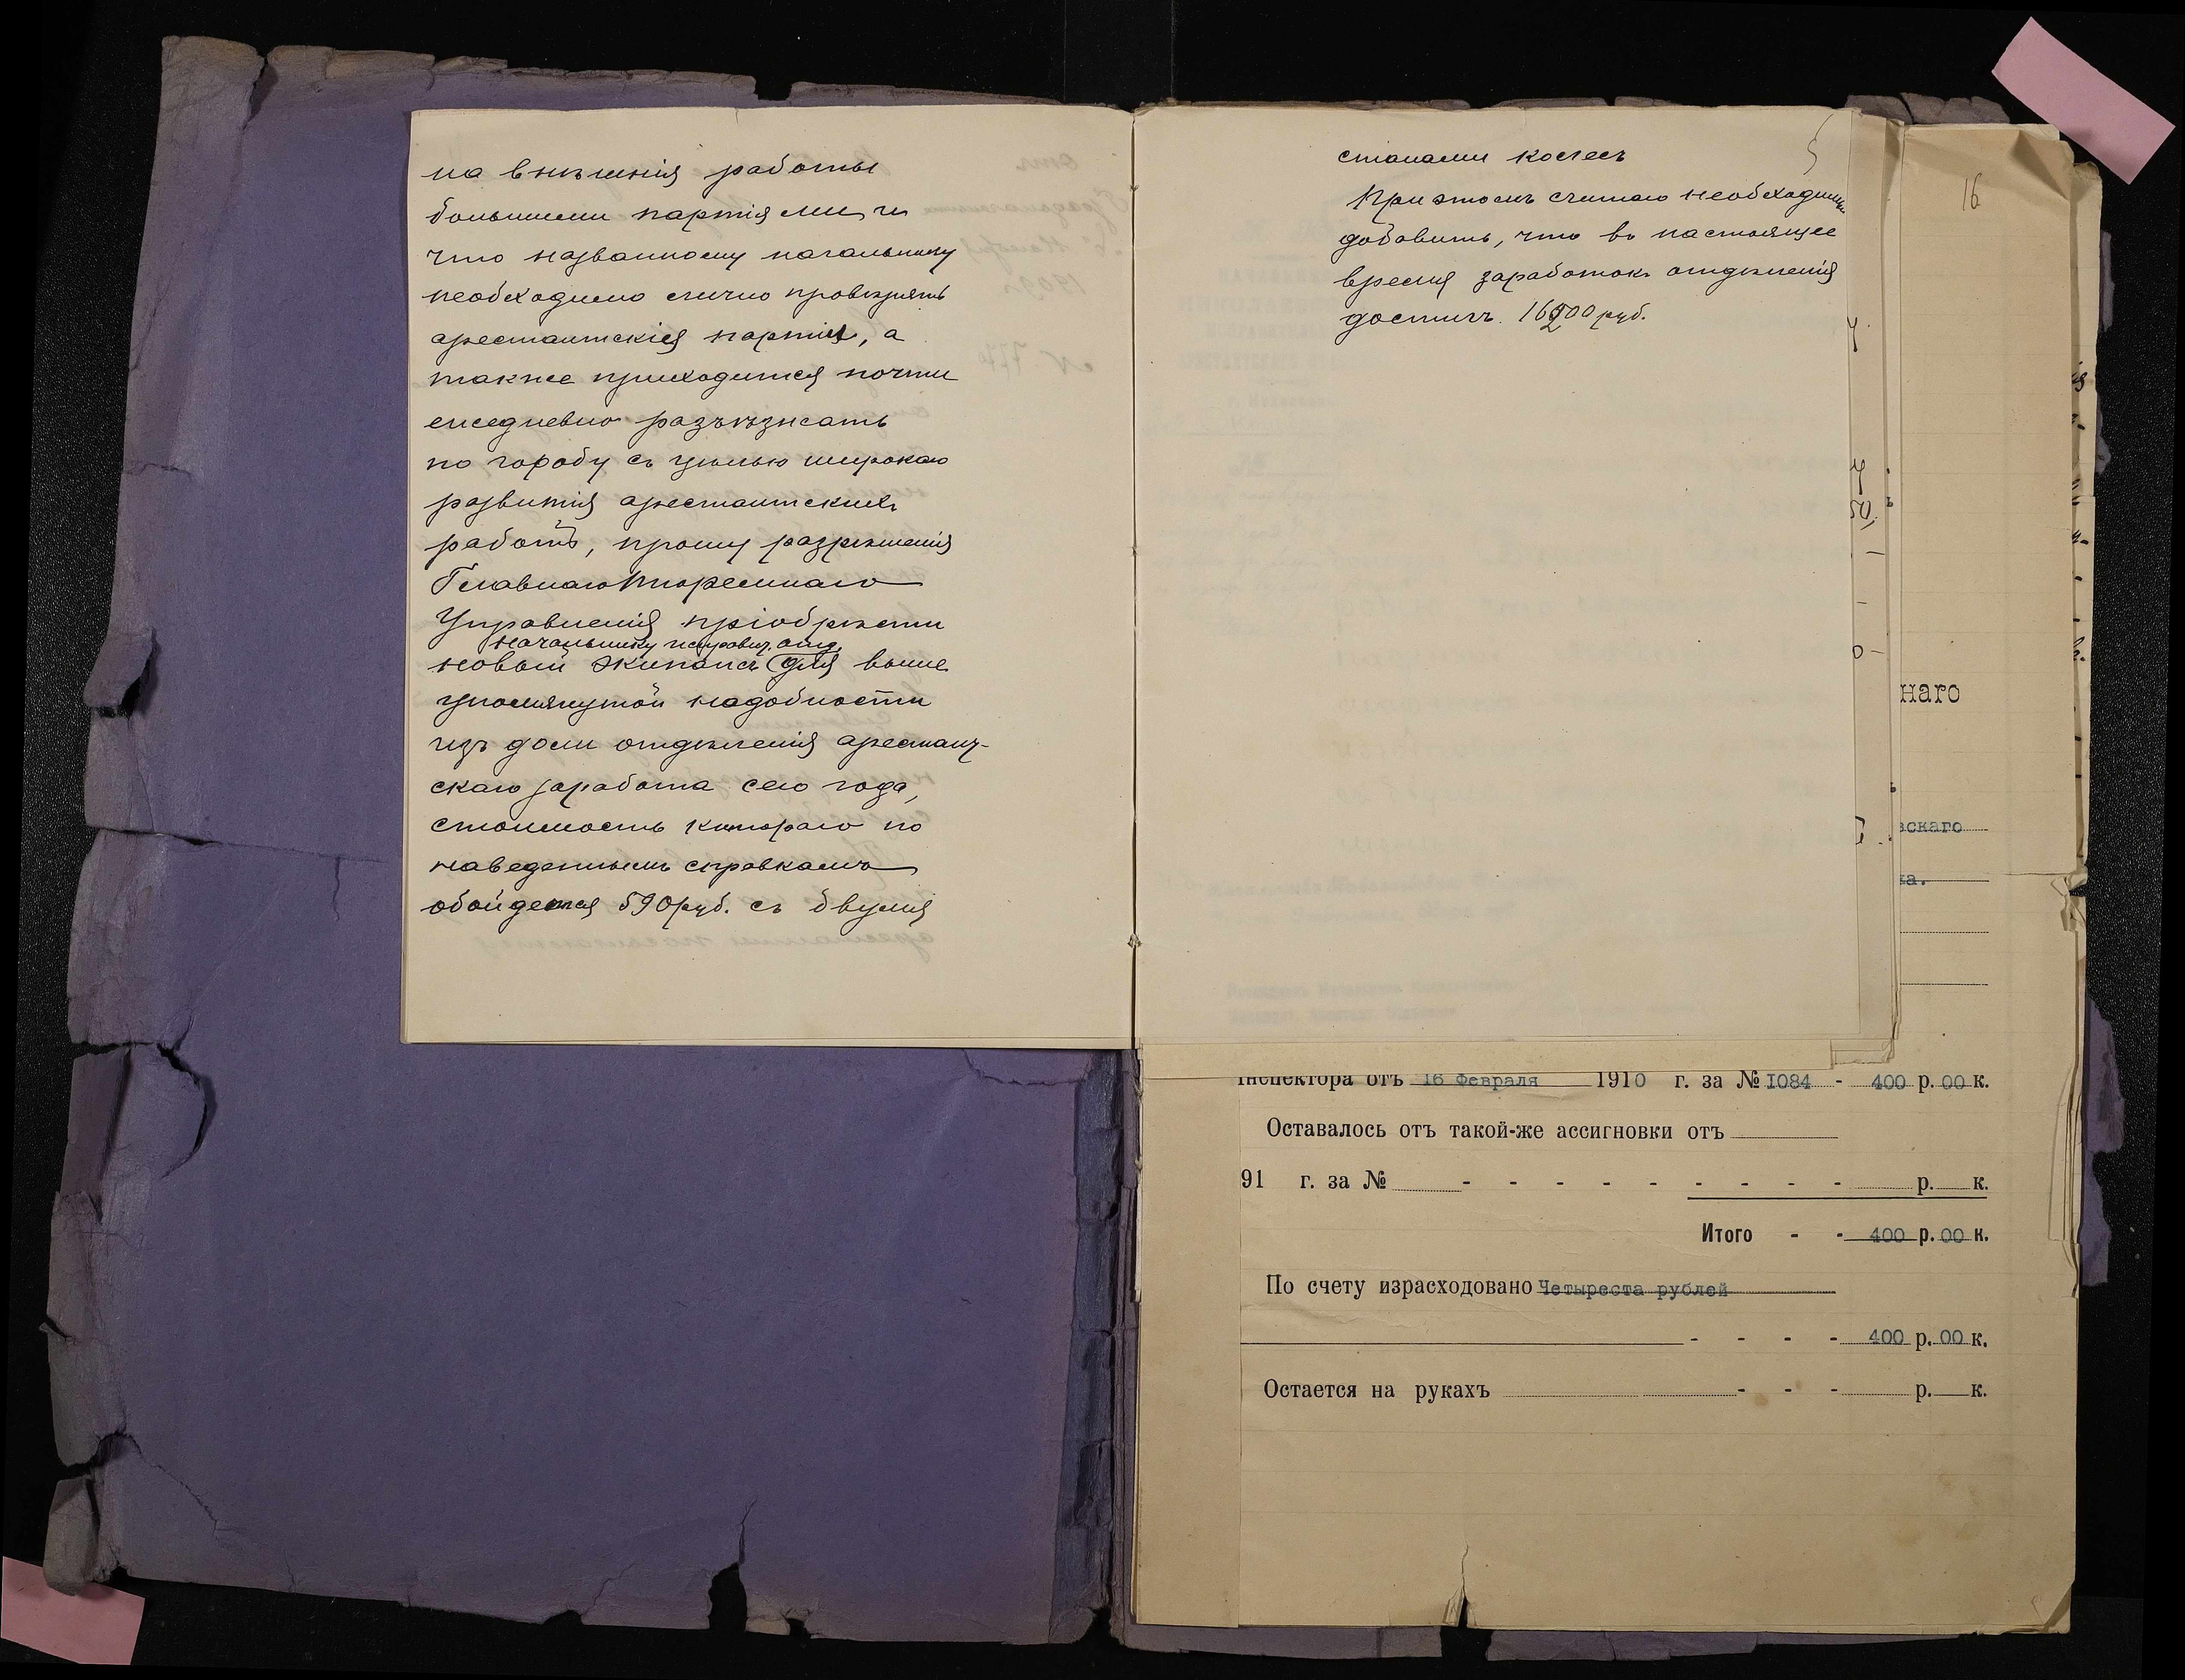 на внѣшнія работы
большими партіями и
что названному начальнику
необходимо лично провѣрять
арестантскія партіи, а
также приходится почти
ежедневно разъѣзжать
по городу съ цѣлью широкаго
развитія арестантскихъ
работъ, прошу разрѣшенія
Главнаго Тюремнаго
Управленія пріобрѣсти
начальнику исправит. отд.
новый экипажъ для выше
упомянутой надобности
изъ доли отдѣленія арестант-
скаго заработка сего года,
стоимость котораго по
наведеннымъ справкамъ
обойдется 590 руб. съ двумя
5
станами колесъ
При этомъ считаю необходимымъ
добавить, что въ настоящее
время заработокъ отдѣленія
достигъ руб.
16
наго
вскаго
ка.
Інспектора отъ 16 Февраля 1910 г. за № I084 - 400 р. 00 к.
Оставалось отъ такой-же ассигновки отъ
91 г. за № - - - - - - - - - р. к.
Итого - - 400 р. 00 к.
По счету израсходовано Четыреста рублей
- - - - 400 р. 00 к.
Остается на рукахъ - - - р. к.